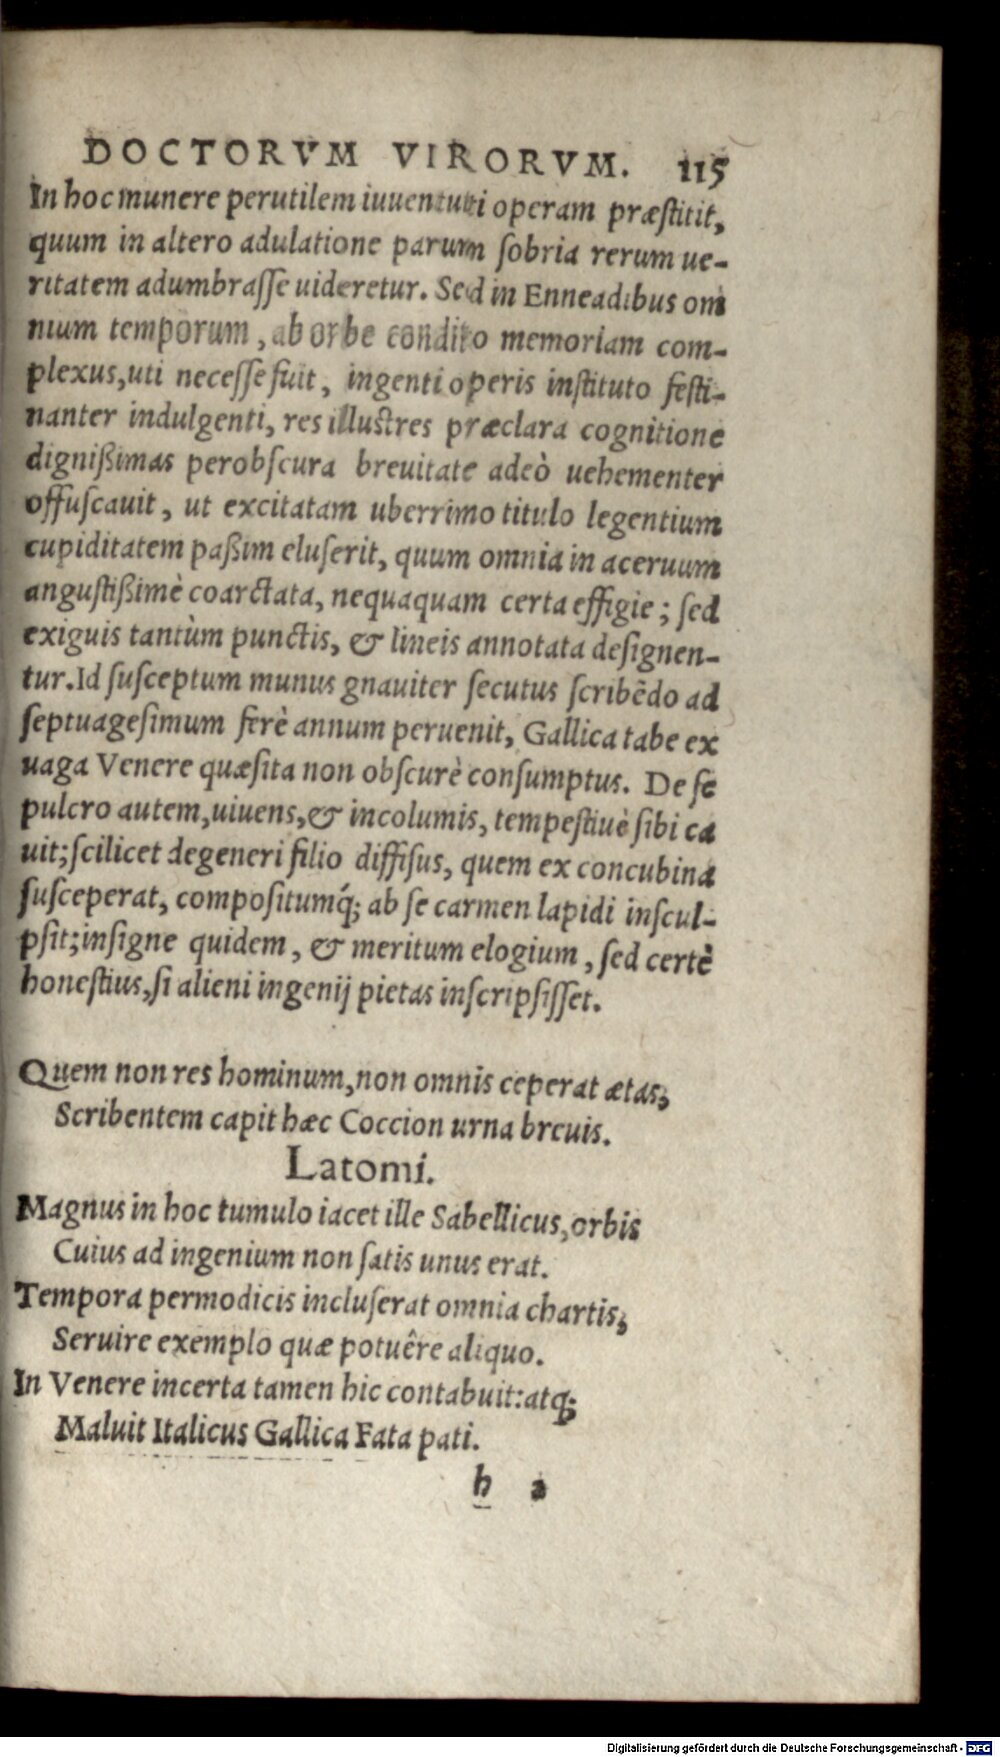 DOCTORVM VIRORVM. 115
In hoc munere perutilem iuuentuti operam præstitit,
quum in altero adulatione parum sobria rerum ue-
ritatem adumbrasse uideretur. Sed in Enneadibus om
nium temporum, ab orbe condito memoriam com-
plexus, uti necesse fuit, ingenti operis instituto festi-
nanter indulgenti, res illustres præclara cognitione
dignißimas perobscura breuitate adeò uehementer
offuscauit, ut excitatam uberrimo titulo legentium
cupiditatem paßim eluserit, quum omnia in aceruum
angustißimè coarctata, nequaquam certa effigie; sed
exiguis tantùm punctis, & lineis annotata designen-
tur. Id susceptum munus gnauiter secutus scribēdo ad
septuagesimum ferè annum peruenit, Gallica tabe ex
uaga Venere quæsita non obscurè consumptus. De se
pulcro autem, uiuens, & incolumis, tempestiuè sibi ca
uit; scilicet degeneri filio diffisus, quem ex concubina
susceperat, compositumq́; ab se carmen lapidi inscul-
psit; insigne quidem, & meritum elogium, sed certè
honestius, si alieni ingenij pietas inscripsisset.
Quem non res hominum, non omnis ceperat ætas;
Scribentem capit hæc Coccion urna breuis.
Latomi.
Magnus in hoc tumulo iacet ille Sabellicus, orbis
Cuius ad ingenium non satis unus erat.
Tempora permodicis incluserat omnia chartis;
Seruire exemplo quæ potuêre aliquo.
In Venere incerta tamen hic contabuit: atq;
Maluit Italicus Gallica Fata pati.
h 2
Digitalisierung gefördert durch die Deutsche Forschungsgemeinschaft - DFG